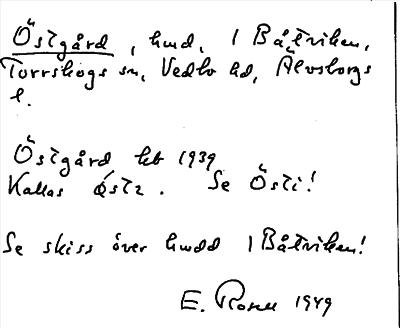 Östgård, hmd, 1 Båtviken,
Torrskogs sn, Vedbo hd, Älvsborgs
l.
Östgård kb 1939
Kallas östa. Se Östi!
Se skiss över hmdd 1 Båtviken!
E. Rosell 1949